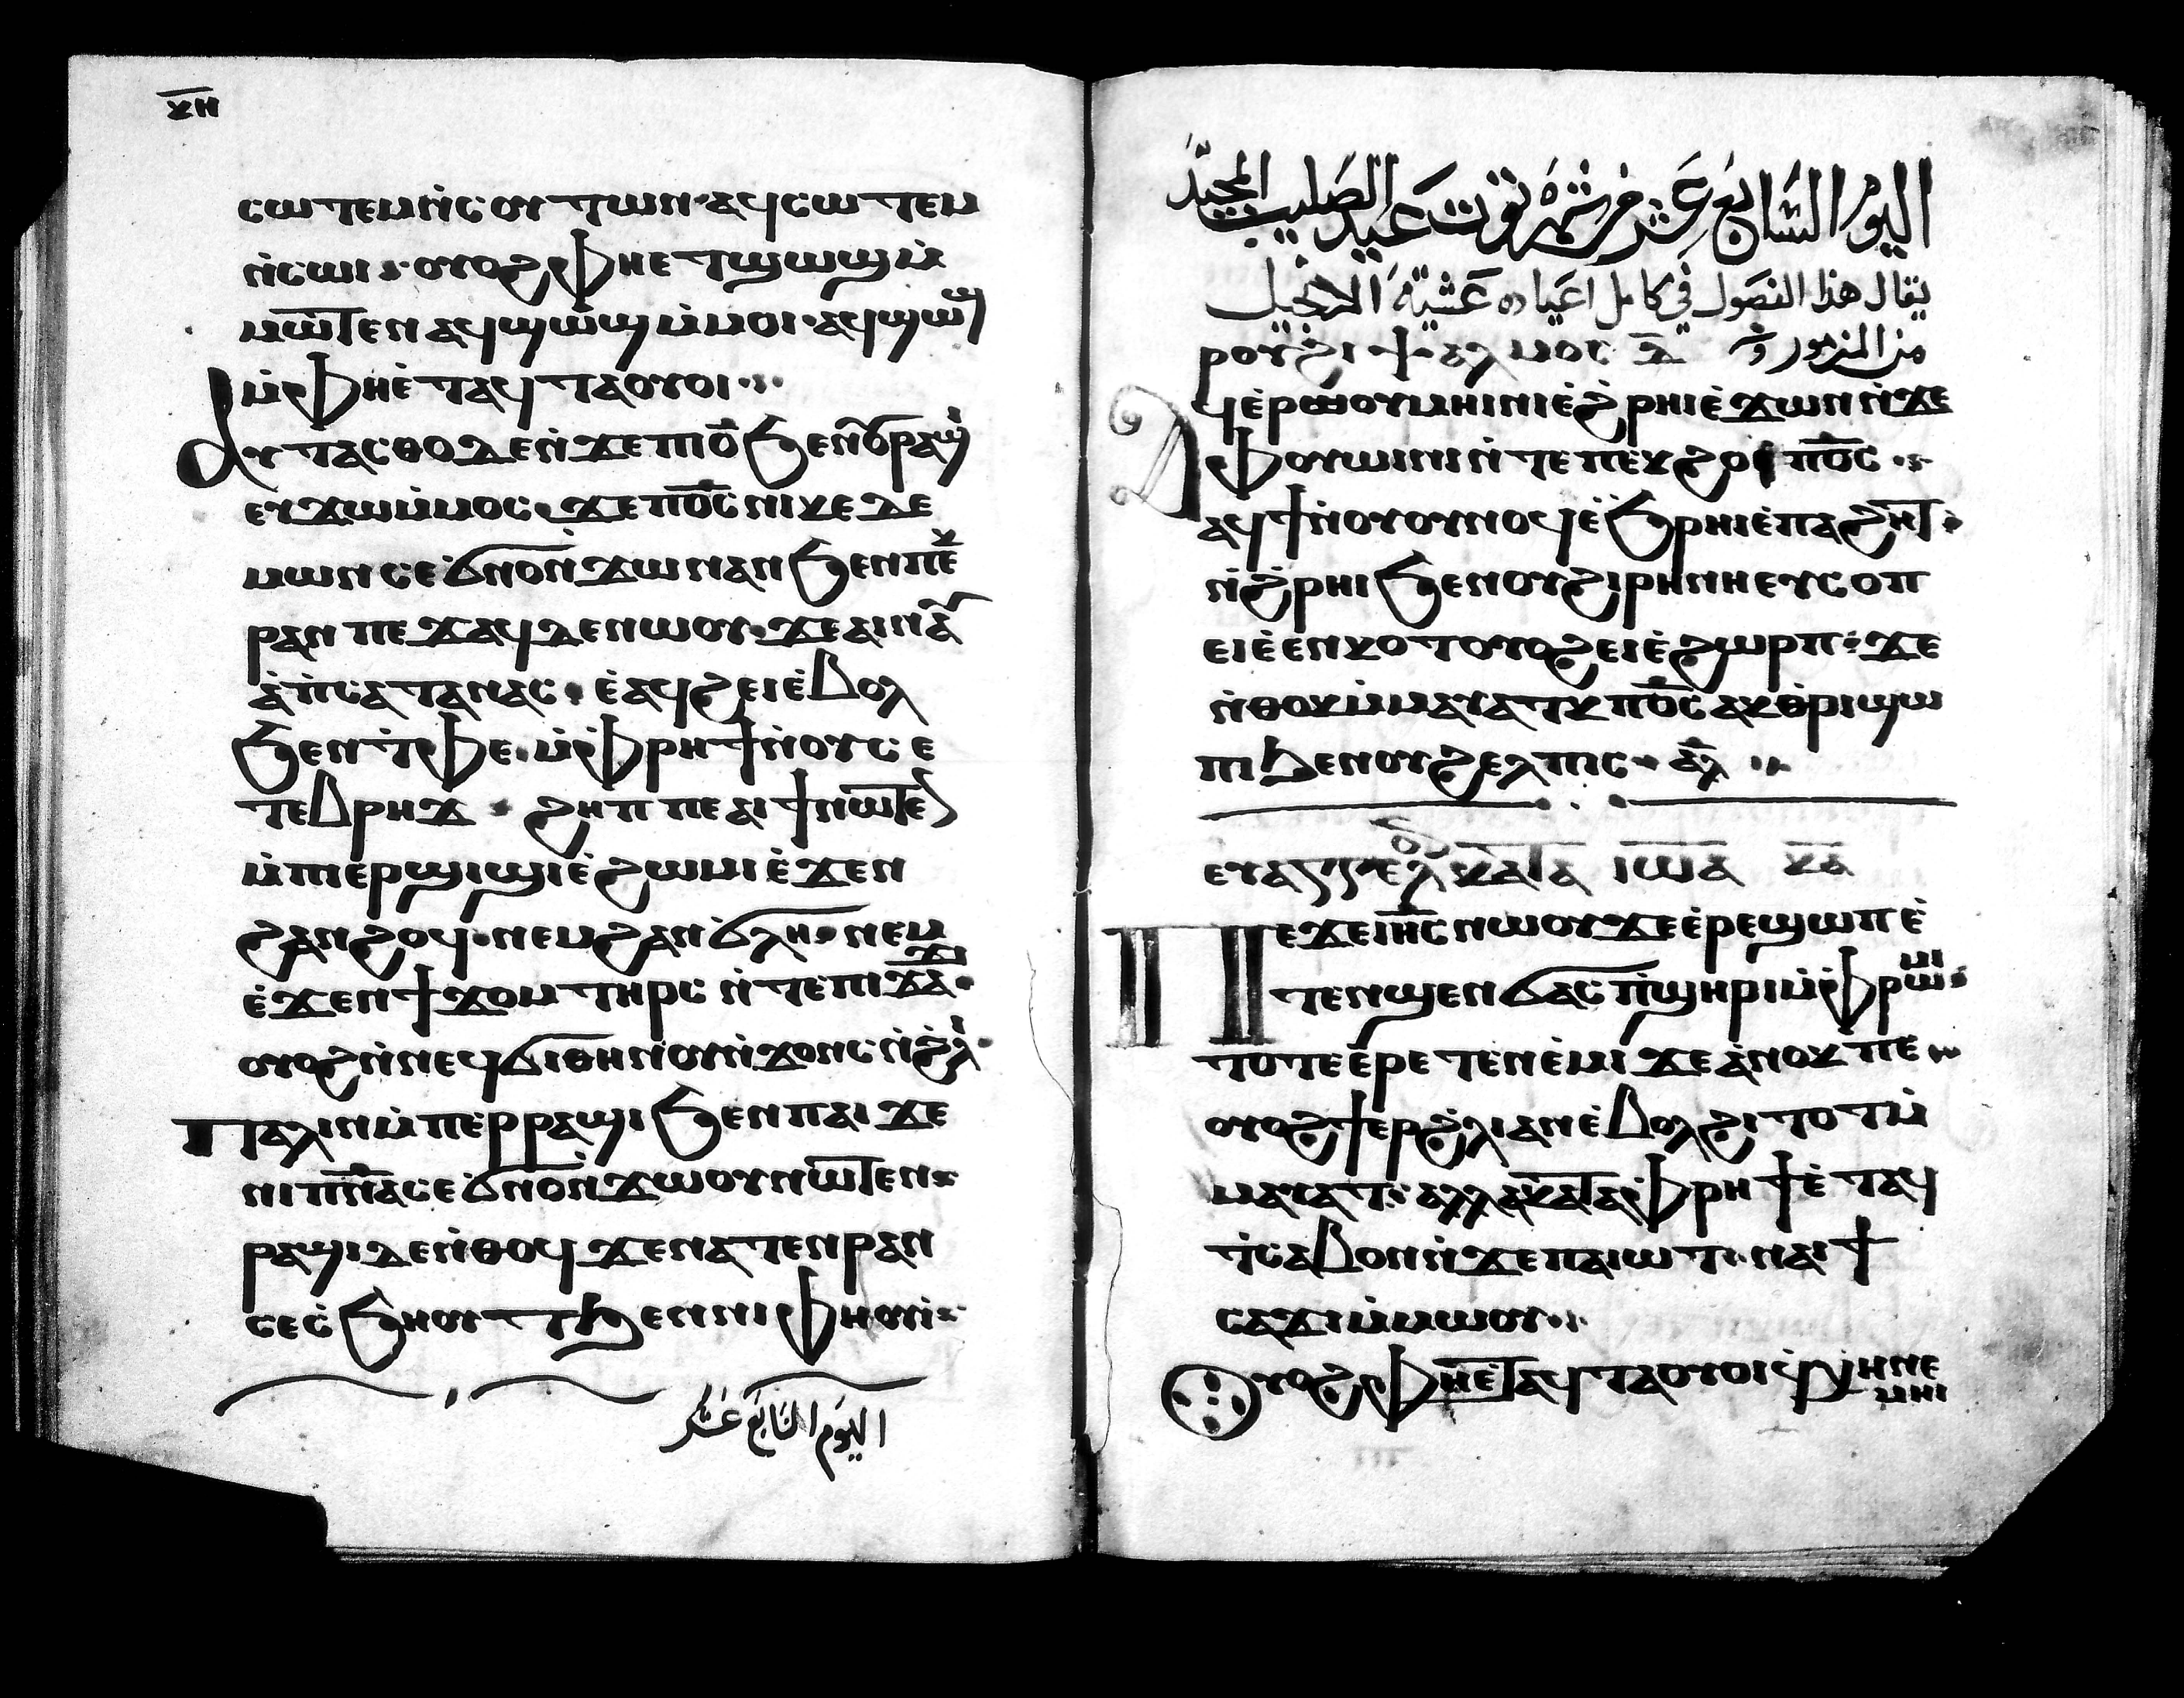 ⲕⲏ
ⲥⲱⲧⲉⲙⲛ̇ⲥⲟⲩⲧⲱⲛ· ⲁϥⲥⲱⲧⲉⲙ
ⲛ̇ⲥⲱⲓ ⲟⲩⲟϩ ⲫⲏⲉⲧϣⲱϣϥ ⲙ̇
ⲙⲱⲧⲉⲛ ⲁϥϣⲱϣϥ ⲙ̇ⲙⲟⲓ· ⲁϥϣⲱϣϥ
ⲙ̇ⲫⲏⲉ̇ⲧⲁϥⲧⲁⲟⲩⲟⲓ
ⲁⲩⲧⲁⲥⲑⲟ ⲇⲉ ⲛ̇ϫⲉⲡⲓⲟ̅ ϧⲉⲛⲟⲩⲣⲁϣⲓ
ⲉⲩϫⲱⲙ̇ⲙⲟⲥ ϫⲉ ⲡⲟ̅ⲥ̅ ⲛⲓⲕⲉⲇⲉ
ⲙⲱⲛ ⲥⲉϭⲛⲟⲛ̇ϫⲱ ⲛⲁⲛ ϧⲉⲛⲡⲉⲕ
ⲣⲁⲛ ⲡⲉϫⲁϥ ⲇⲉ ⲛⲱⲟⲩ ϫⲉ ⲁⲓⲛⲁⲩ
ⲁ̇ⲡ̇ⲥⲁⲧⲁⲛⲁⲥ· ⲉ̇ⲁϥϩⲉⲓ ⲉ̇ⲃⲟⲗ
ϧⲉⲛⲧ̇ⲫⲉ· ⲙ̇ⲫⲣⲏϯ ⲛ̇ⲟⲩⲥⲉ
ⲧⲉⲃⲣⲏϫ ϩⲏⲡⲡⲉ ⲁⲓϯ ⲛⲱⲧⲉⲛ
ⲙ̇ⲡⲓⲉⲣϣⲓϣⲓ ⲉ̇ϩⲱⲙⲓ ⲉ̇ϫⲉⲛ
ϩⲁⲛϩⲟϥ· ⲛⲉⲙϩⲁⲛϭⲗⲏ ⲛⲉⲙ
ⲉ̇ϫⲉⲛϯϫⲟⲙ ⲧⲏⲣⲥ ⲛ̇ⲧⲉⲡⲓϫⲁϫⲓ
ⲟⲩⲟϩ ⲛ̇ⲛⲉϥϭⲓⲑⲏⲛⲟⲩ ⲛ̇ϫⲟⲛⲥ ⲛ̇ϩ̇ⲗⲓ
ⲡⲁⲗⲓⲛ ⲙ̇ⲡⲉⲣⲣⲁϣⲓ ϧⲉⲛⲡⲁⲓ ϫⲉ
ⲛⲓⲡⲛ̅ⲁ̅ ⲥⲉϭⲛⲟⲛ̇ϫⲱⲟⲩ ⲛⲱⲧⲉⲛ
ⲣⲁϣⲓ ⲇⲉ ⲛ̇ⲑⲟϥ ϫⲉ ⲛⲁⲧⲉⲛⲣⲁⲛ
ⲥⲉⲥ̇ϧⲏⲟⲩⲧ ϧⲉⲛ ⲛⲓⲫⲏⲟⲩⲓ̇
اليوم السابع عشر
اليوم السابع عشر من شهر توت عيد الصليب المجيد
يقال هذا الفصول في كامل اعياده عشية الانجيل
من المزمور
ⲣⲟⲩϩⲓ ⲯⲁⲗⲙⲟⲥ ⲇ̅
ⲁϥⲉ̇ⲣⲙⲟⲩⲙⲏⲓⲛⲓ ⲉ̇ϩ̇ⲣⲏⲓ ⲉ̇ϫⲱⲛ ⲛ̇ϫⲉ
ⲫⲟⲩⲱⲓⲛⲓ ⲛ̇ⲧⲉ ⲡⲉⲕϩⲟ ⲡⲟ̅ⲥ̅
ⲁϥϯ ⲛ̇ⲟⲩⲟⲩⲛⲟϥ ⲉ̇ϧ̇ⲣⲏⲓ ⲉ̇ⲡⲁϩⲏⲧ
ⲛ̇ϩ̇ⲣⲏⲓ ϧⲉⲛ ⲟⲩϩⲓⲣⲏⲛⲏ ⲉⲩⲥⲟⲡ
ⲉⲓⲉ̇ⲉⲛⲕⲟⲧ ⲟⲩⲟϩ ⲉⲓⲉ̇ϩⲱⲣⲡ ϫⲉ
ⲛ̇ⲑⲟⲕ ⲙ̇ⲙⲁⲩⲁⲧⲕ ⲡⲟ̅ⲥ̅ ⲁⲕⲑⲣⲓϣⲱ
ⲡⲓ ϧⲉⲛ ⲟⲩϩⲉⲗⲡⲓⲥ· ⲁ̅ⲗ̅
ⲉⲩⲁⲅⲅⲉⲗ ⲕⲁⲧⲁ ⲓⲱⲁ ⲕⲁ
ⲡⲉϫⲉ ⲓⲏ̅ⲥ̅ ⲛⲱⲟⲩ ϫⲉ ⲉ̇ⲣⲉϣⲱⲡ ⲉ̇
ⲧⲉⲛϣⲉⲛϭⲁⲥ ⲡ̇ϣⲏⲣⲓ ⲙ̇ⲫⲣⲱⲙⲓ
ⲧⲟⲧⲉ ⲉ̇ⲣⲉⲧⲉⲛⲉ̇ⲙⲓ ϫⲉ ⲁ̇ⲛⲟⲕ ⲡⲉ
ⲟⲩⲟϩ ϯⲉⲣϩ̇ⲗⲓ ⲁⲛ ⲉ̇ⲃⲟⲗϩⲓⲧⲟⲧ ⲙ̇
ⲙⲁⲩⲁⲧ ⲁⲗⲗⲁ ⲕⲁⲧⲁ ⲫⲣⲏϯ ⲉ̇ⲧⲁϥ
ⲧ̇ⲥⲁⲃⲟⲛ ⲛ̇ϫⲉⲡⲁⲓⲱⲧ ⲛⲁⲓ ϯ
ⲥⲁϫⲓ ⲙ̇ⲙⲱⲟⲩ
ⲟⲩⲟϩ ⲫⲏⲉ̇ⲧⲁϥⲧⲁⲟⲩⲟⲓ ϥ̇ⲭⲏ ⲛⲉ
ⲙⲏⲓ